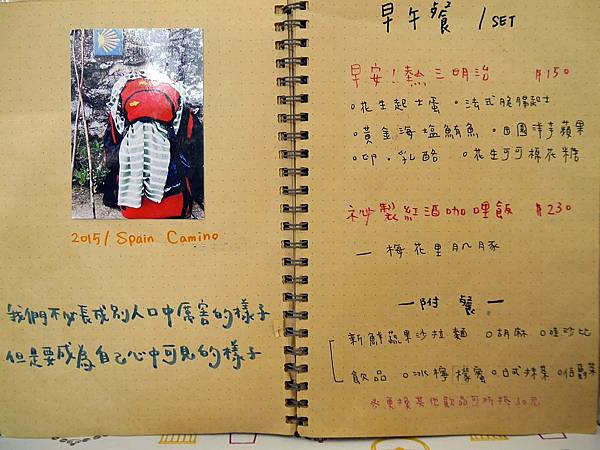 2015/ Spain Camino
我們不必長成別人口中厲害的樣子
但是要成為自己心中可見的樣子
早午餐 / SET
早安!熱三明治 $150
。花生起士蛋 。法式脆腸起士
。黃金海塩鮪魚 。田園洋芋蘋果
。卬。乳酪 。花生可可棉花糖
祕製紅酒咖哩飯 $230
— 梅花里肌豚
— 附餐 —
新鮮蔬果沙拉 麵 。胡麻 。
飲品 。冰檸檬蜜 。日式抹茶 。伯爵茶
更換其他飲品可折抵30元